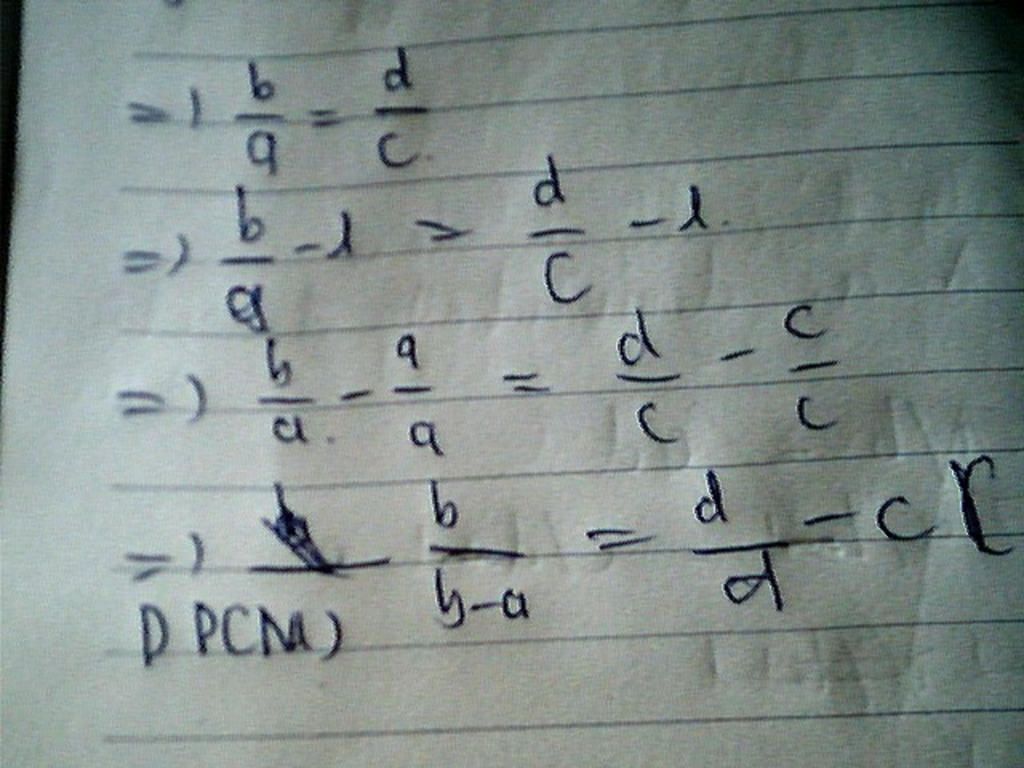 => b/a = d/c
=> b/a - 1 = d/c - 1
=> b/a - a/a = d/c - c/c
=> b/b-a = d/d - c